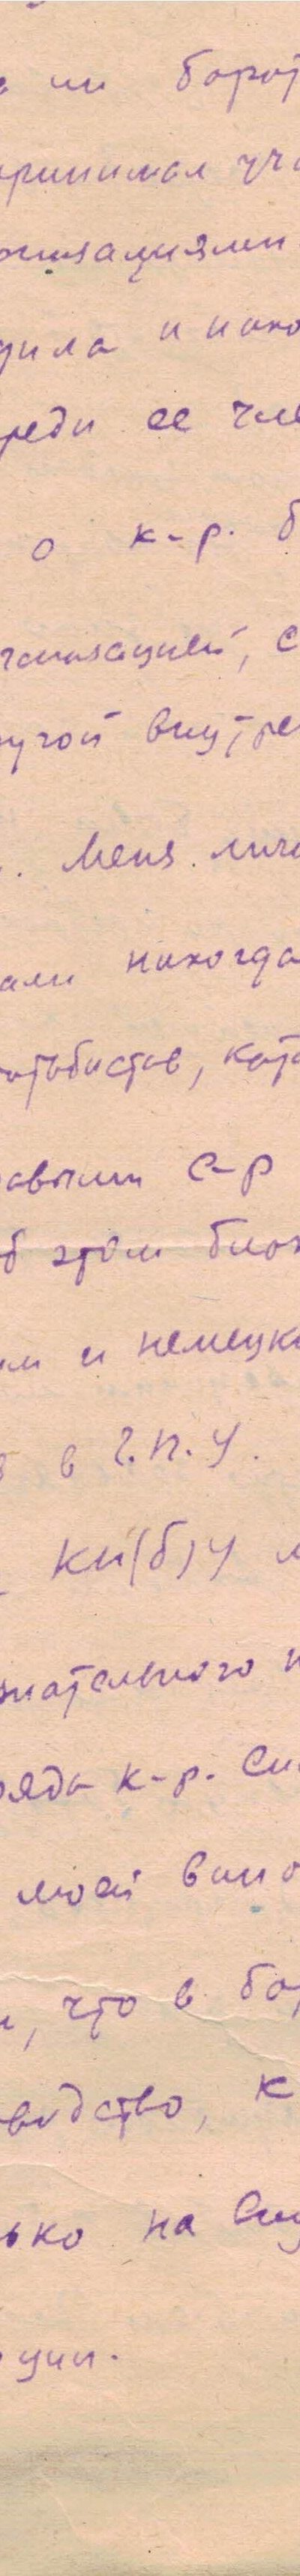 ли борот
принимал уча
низациями
дила и нахо
реди ее чле
о к-р. б
ганизацией, с
другой внутре
. Меня лич
али никогда
отьбистов, кото
равыми с-р
об этом блок
им и немецк
в в Г.П.У.
КП(б)У
знательного
ряда к-р.
моей вино
, что в бо
водство, к
ько на
ции.